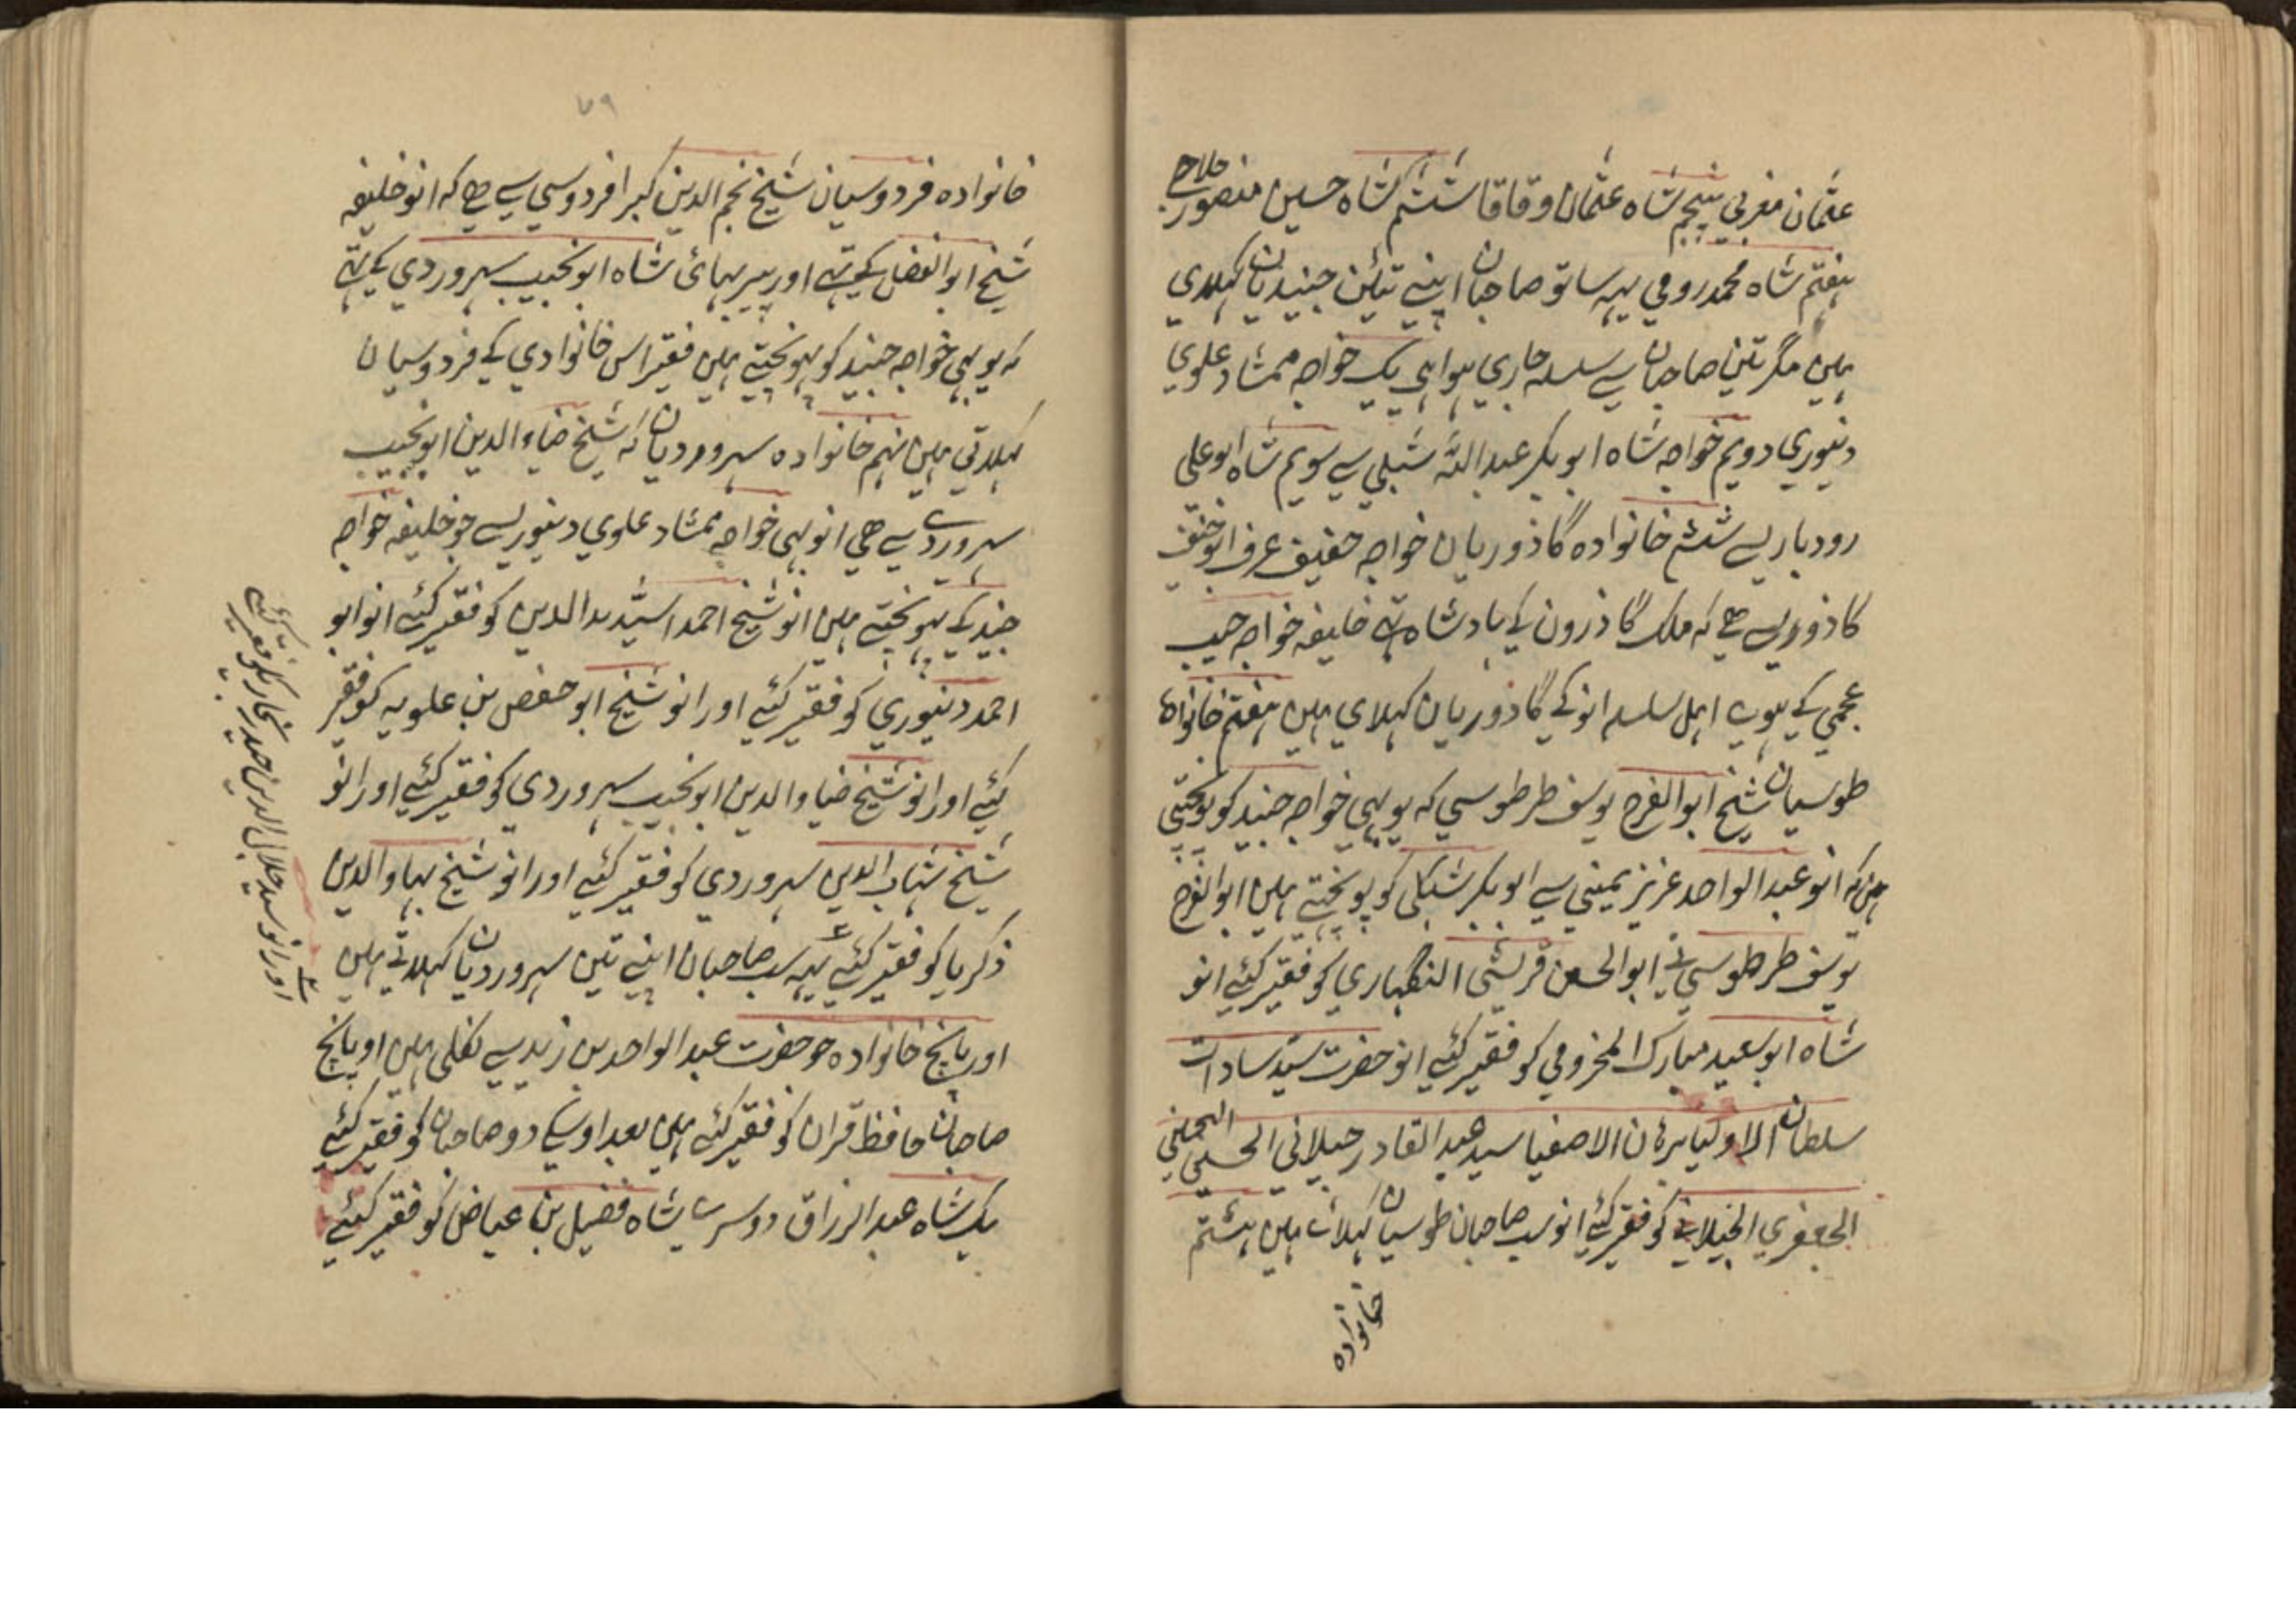 عثمان مغربی پنجم شاہ عثمان وقاقا ششم شاہ حسین منصور حلاج
ہفتم شاہ محمد رومی یہہ ساتو صاحبان اپنے تئین جنیدیان کہلاي
ہین مگر تین صاحبان سے سلسلہ جاري ہوا ہی یک خواجہ ممشاد علوي
دنیوري دویم خواجہ شاہ ابو بکر عبد اللہ شبلي سے سویم شاہ ابو علي
رودباري سے ششم خانوادہ گاذوریان خواجہ حفیف عرف ابو حنیف
گاذوري سے ہے کہ ملک گاذرون کے بادشاہ تہے خلیفہ خواجہ حبیب
عجمي کے ہوے اہل سلسلہ انو کے گاذوریان کہلاي ہین ہفتم خانوادہ
طوسیان شیخ ابو الفرح یوسف طرطوسي کہ یو بہی خواجہ جنید کو پونچتے
ہین کہ انو عبد الواحد عزیز یمیني سے ابو بکر شبلي کو پونچتے ہین ابو الفرح
یوسف طرطوسي نے ابو الحسن قریشي الہنکاري کو فقیر کئے انو
شاہ ابو سعید مبارک المخرومي کو فقیر کئے انو حضرت سید سادات
سلطان الاولیا برہان الاصفیا سید عبد القادر جیلاني الحسني الحسیني
الجعفري الجیلاني کو فقیر کئے انو سب صاحبان طوسیان کہلاے ہین ہشتم
خانوادہ
۷۹
خانوادہ فردوسیان شیخ نجم الدین کبرا فردوسي سے ہے کہ انو خلیفہ
شیخ ابو الفضل کے تہے اور پیر بہائ شاہ ابو نجیب سہروردي کے تہے
کہ یو بہي خواجہ جنید کو پہونچتے ہین فقیر اس خانوادي کے فردوسیان
کہلاتي ہین نہم خانوادہ سہروردیان کہ شیخ ضیاو الدین ابو نجیب
سہروردے سے ہي انو بہی خواجہ ممشاد علوي دنیوري سے جو خلیفہ خواجہ
جنید کے پہونچتے ہین انو شیخ احمد اسید الدین کو فقیر کئے انو ابو
احمد دنیوري کو فقیر کئے اور انو شیخ ابو حفص بن علویہ کو فقیر
کئے اور انو شیخ ضیاو الدین ابو نجیب سہروردي کو فقیر کئے اور انو
شیخ شہاب الدین سہروردي کو فقیر کئے اور انو شیخ بہاو الدین
ذکریا کو فقیر کئے یہہ سب صاحبان اپنے تین سہروردیان کہلاتے ہین
اور پانچ خانوادہ جو حضرت عبد الواحد بن زید سے نکلي ہین او پانچ
صاحبان حافظ قران کو فقیر کئے ہین بعد اوسکے دو صاحبان کو فقیر کئے
یک شاہ عبد الرزاق دوسرے شاہ فضیل بن عیاض کو فقیر کئے
اور انو سید جلال الدین حیدر بخاري کو فقیر کئے